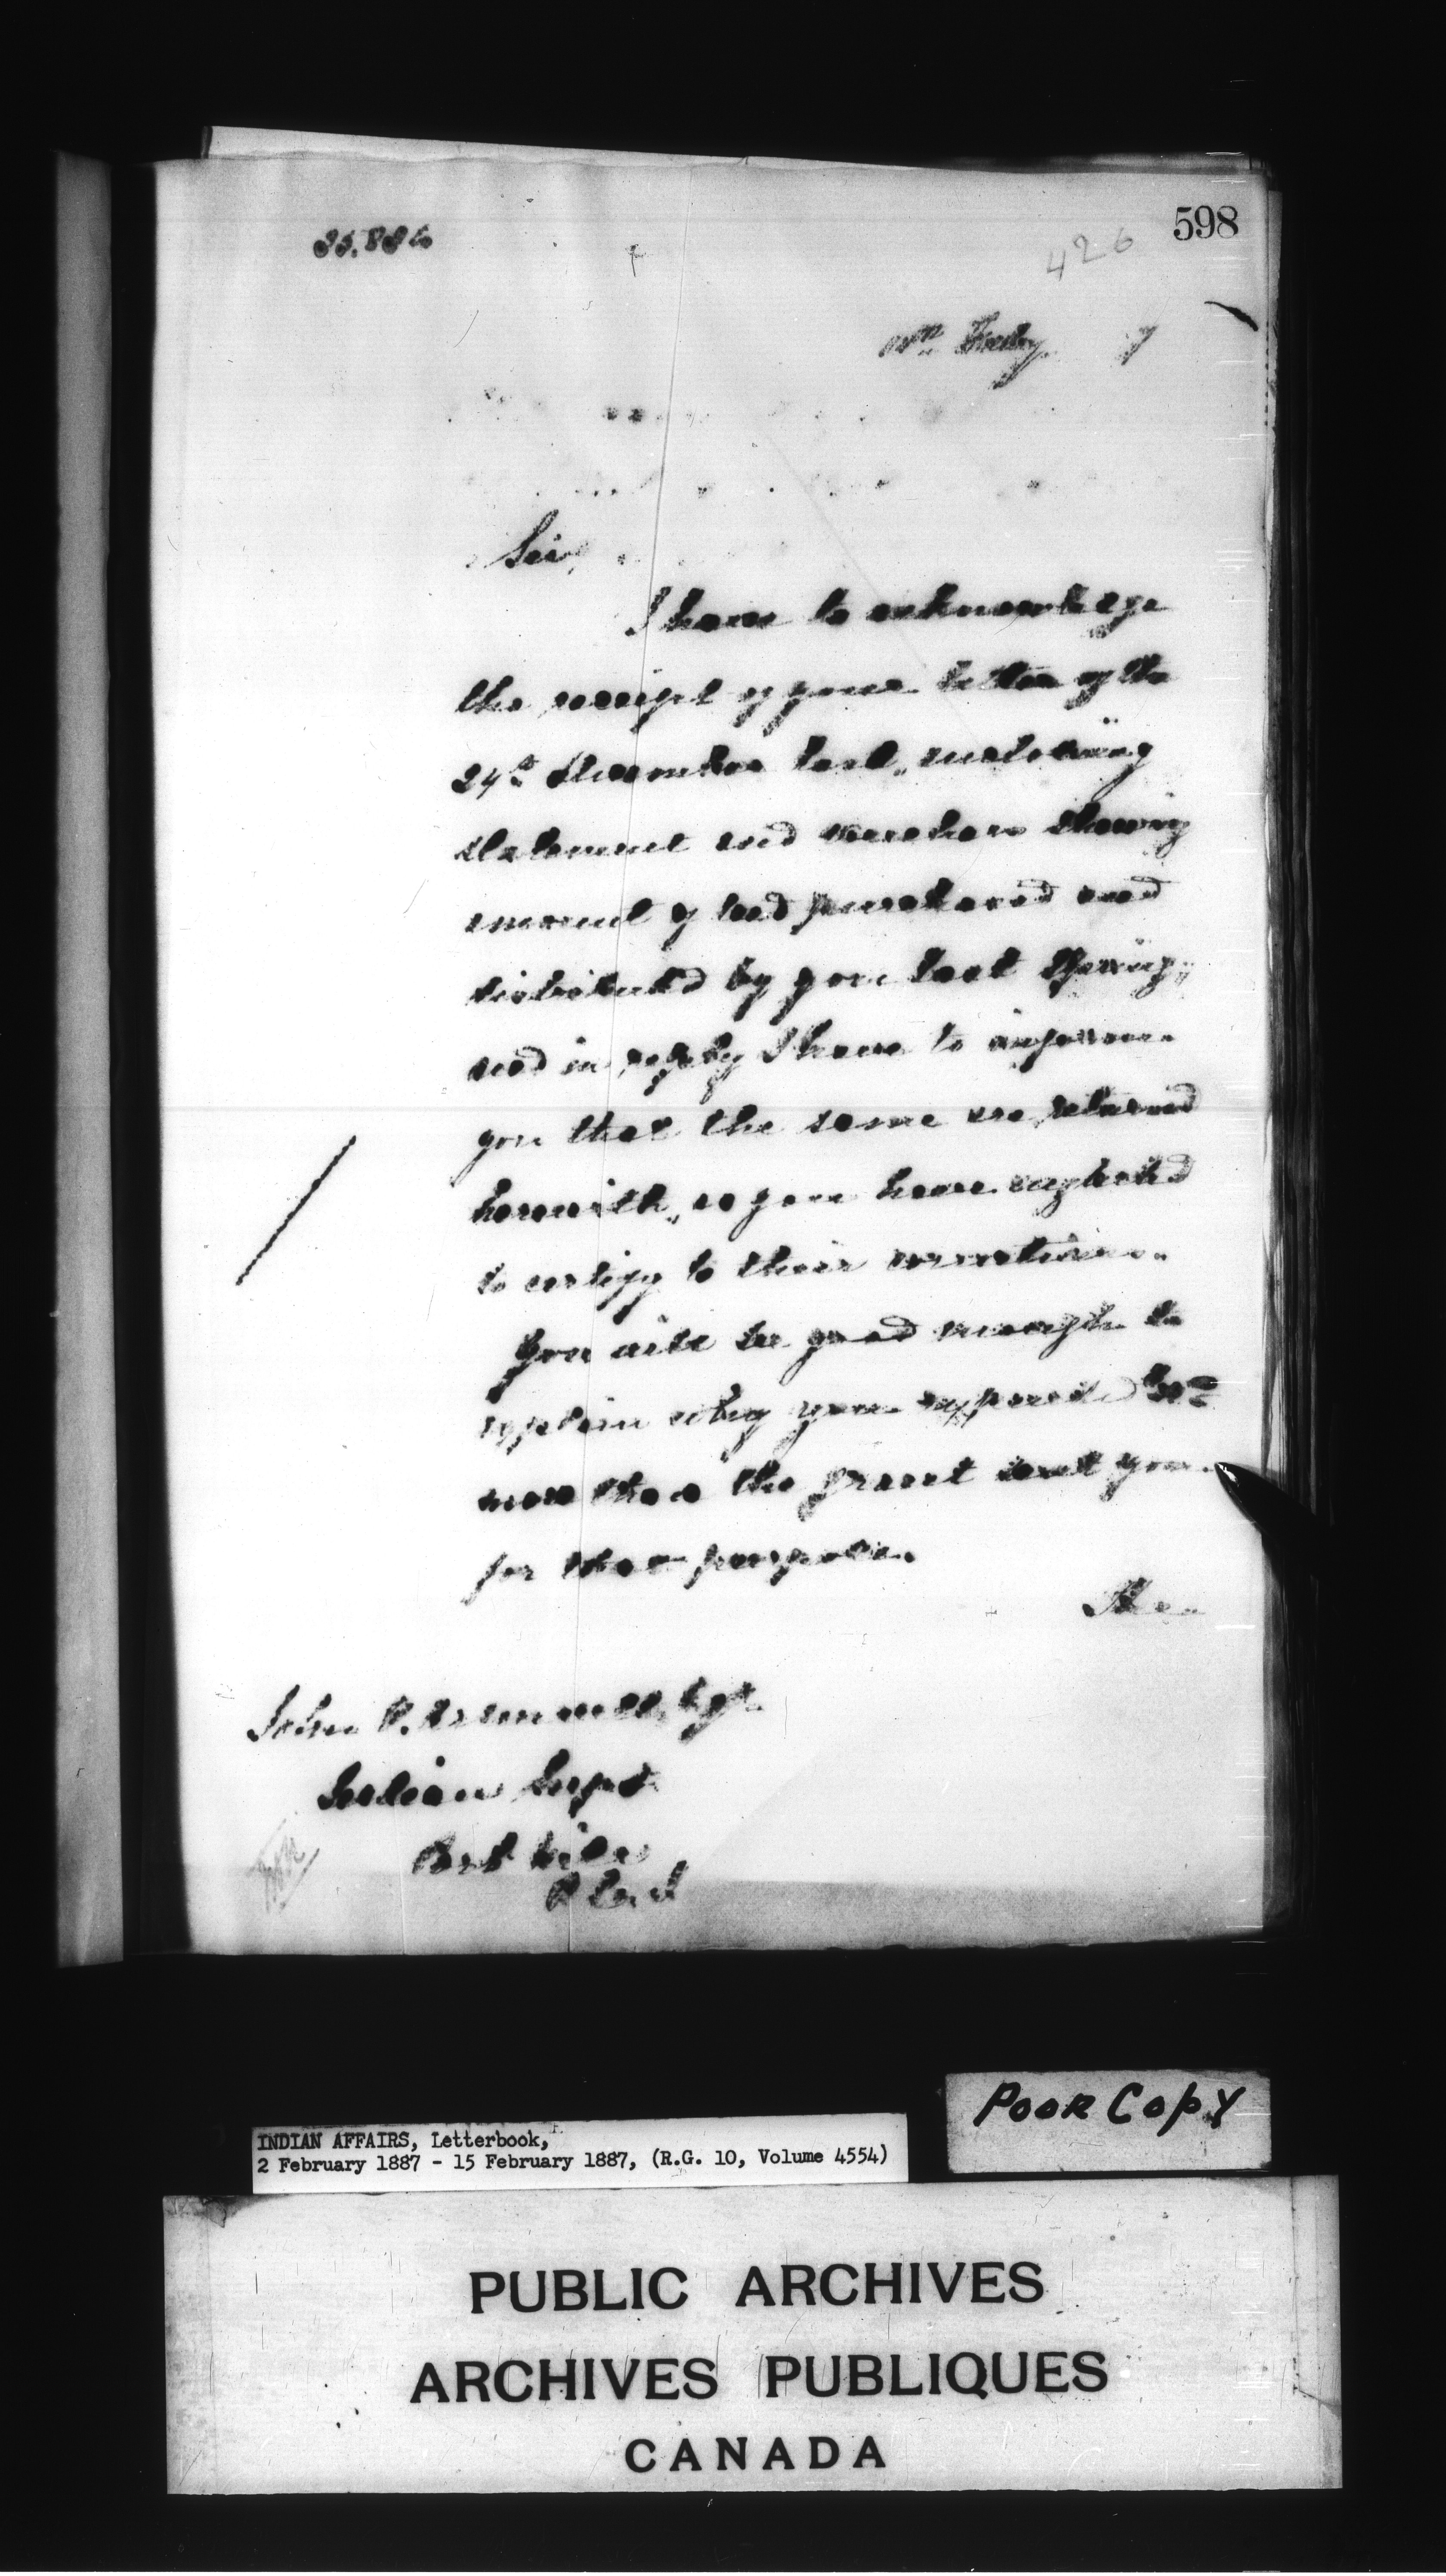 598
426
7
Sir,
I have to acknowledge
the receipt of your letter of the
24th December last, enclosing
statement and vouchers showing
amount of seed purchased and
distributed by you last Spring,
and in reply I have to inform
you that the same are returned
herewith, as you have neglected
to certify to their correctness.
You will be good enough to
explain why you expended
more than the grant sent you
for that purpose.
The
John Esqr.
Indian Supt.
P. E. Isd
POOR COPY
INDIAN AFFAIRS, Letterbook,
2 February 1887 - 15 February 1887, (R.G. 10, Volume 4554)
PUBLIC ARCHIVES
ARCHIVES PUBLIQUES
CANADA